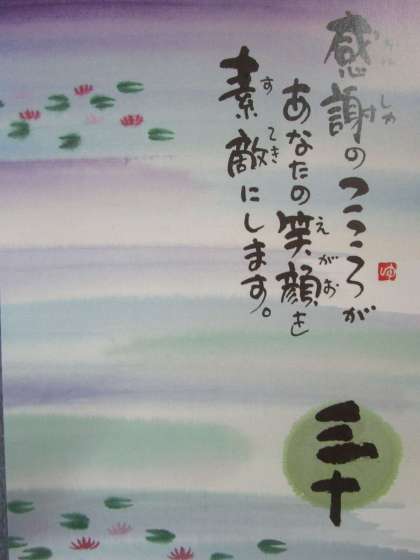 感謝のこころが
かんしゃ
あなたの笑顔を
えがお
素敵にします。
すてき
ゆ
三十